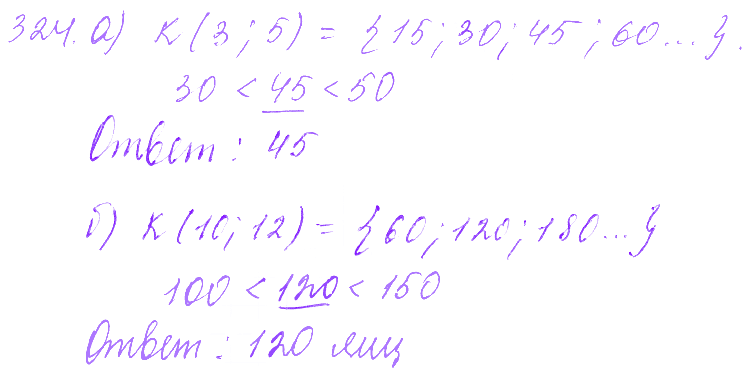 324. а) К (3; 5) = {15; 30; 45; 60...}.
30 < 45 < 50
Ответ: 45
б) К (10; 12) = {60; 120; 180...}
100 < 120 < 150
Ответ: 120 яиц